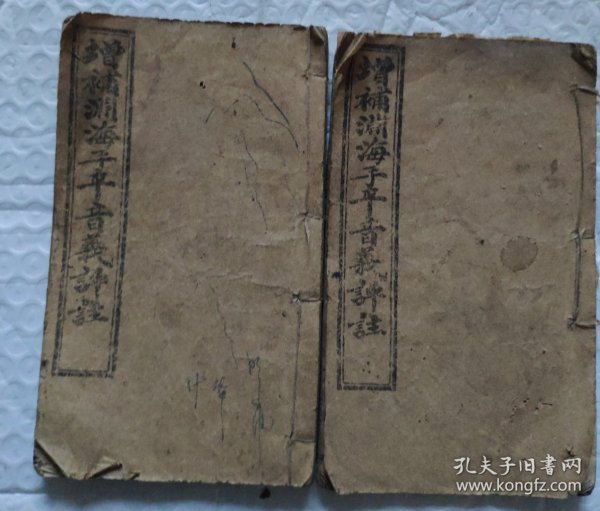 增補淵海子平音義評註
增補淵海子平音義評註
孔夫子旧书网
www.kongfz.com